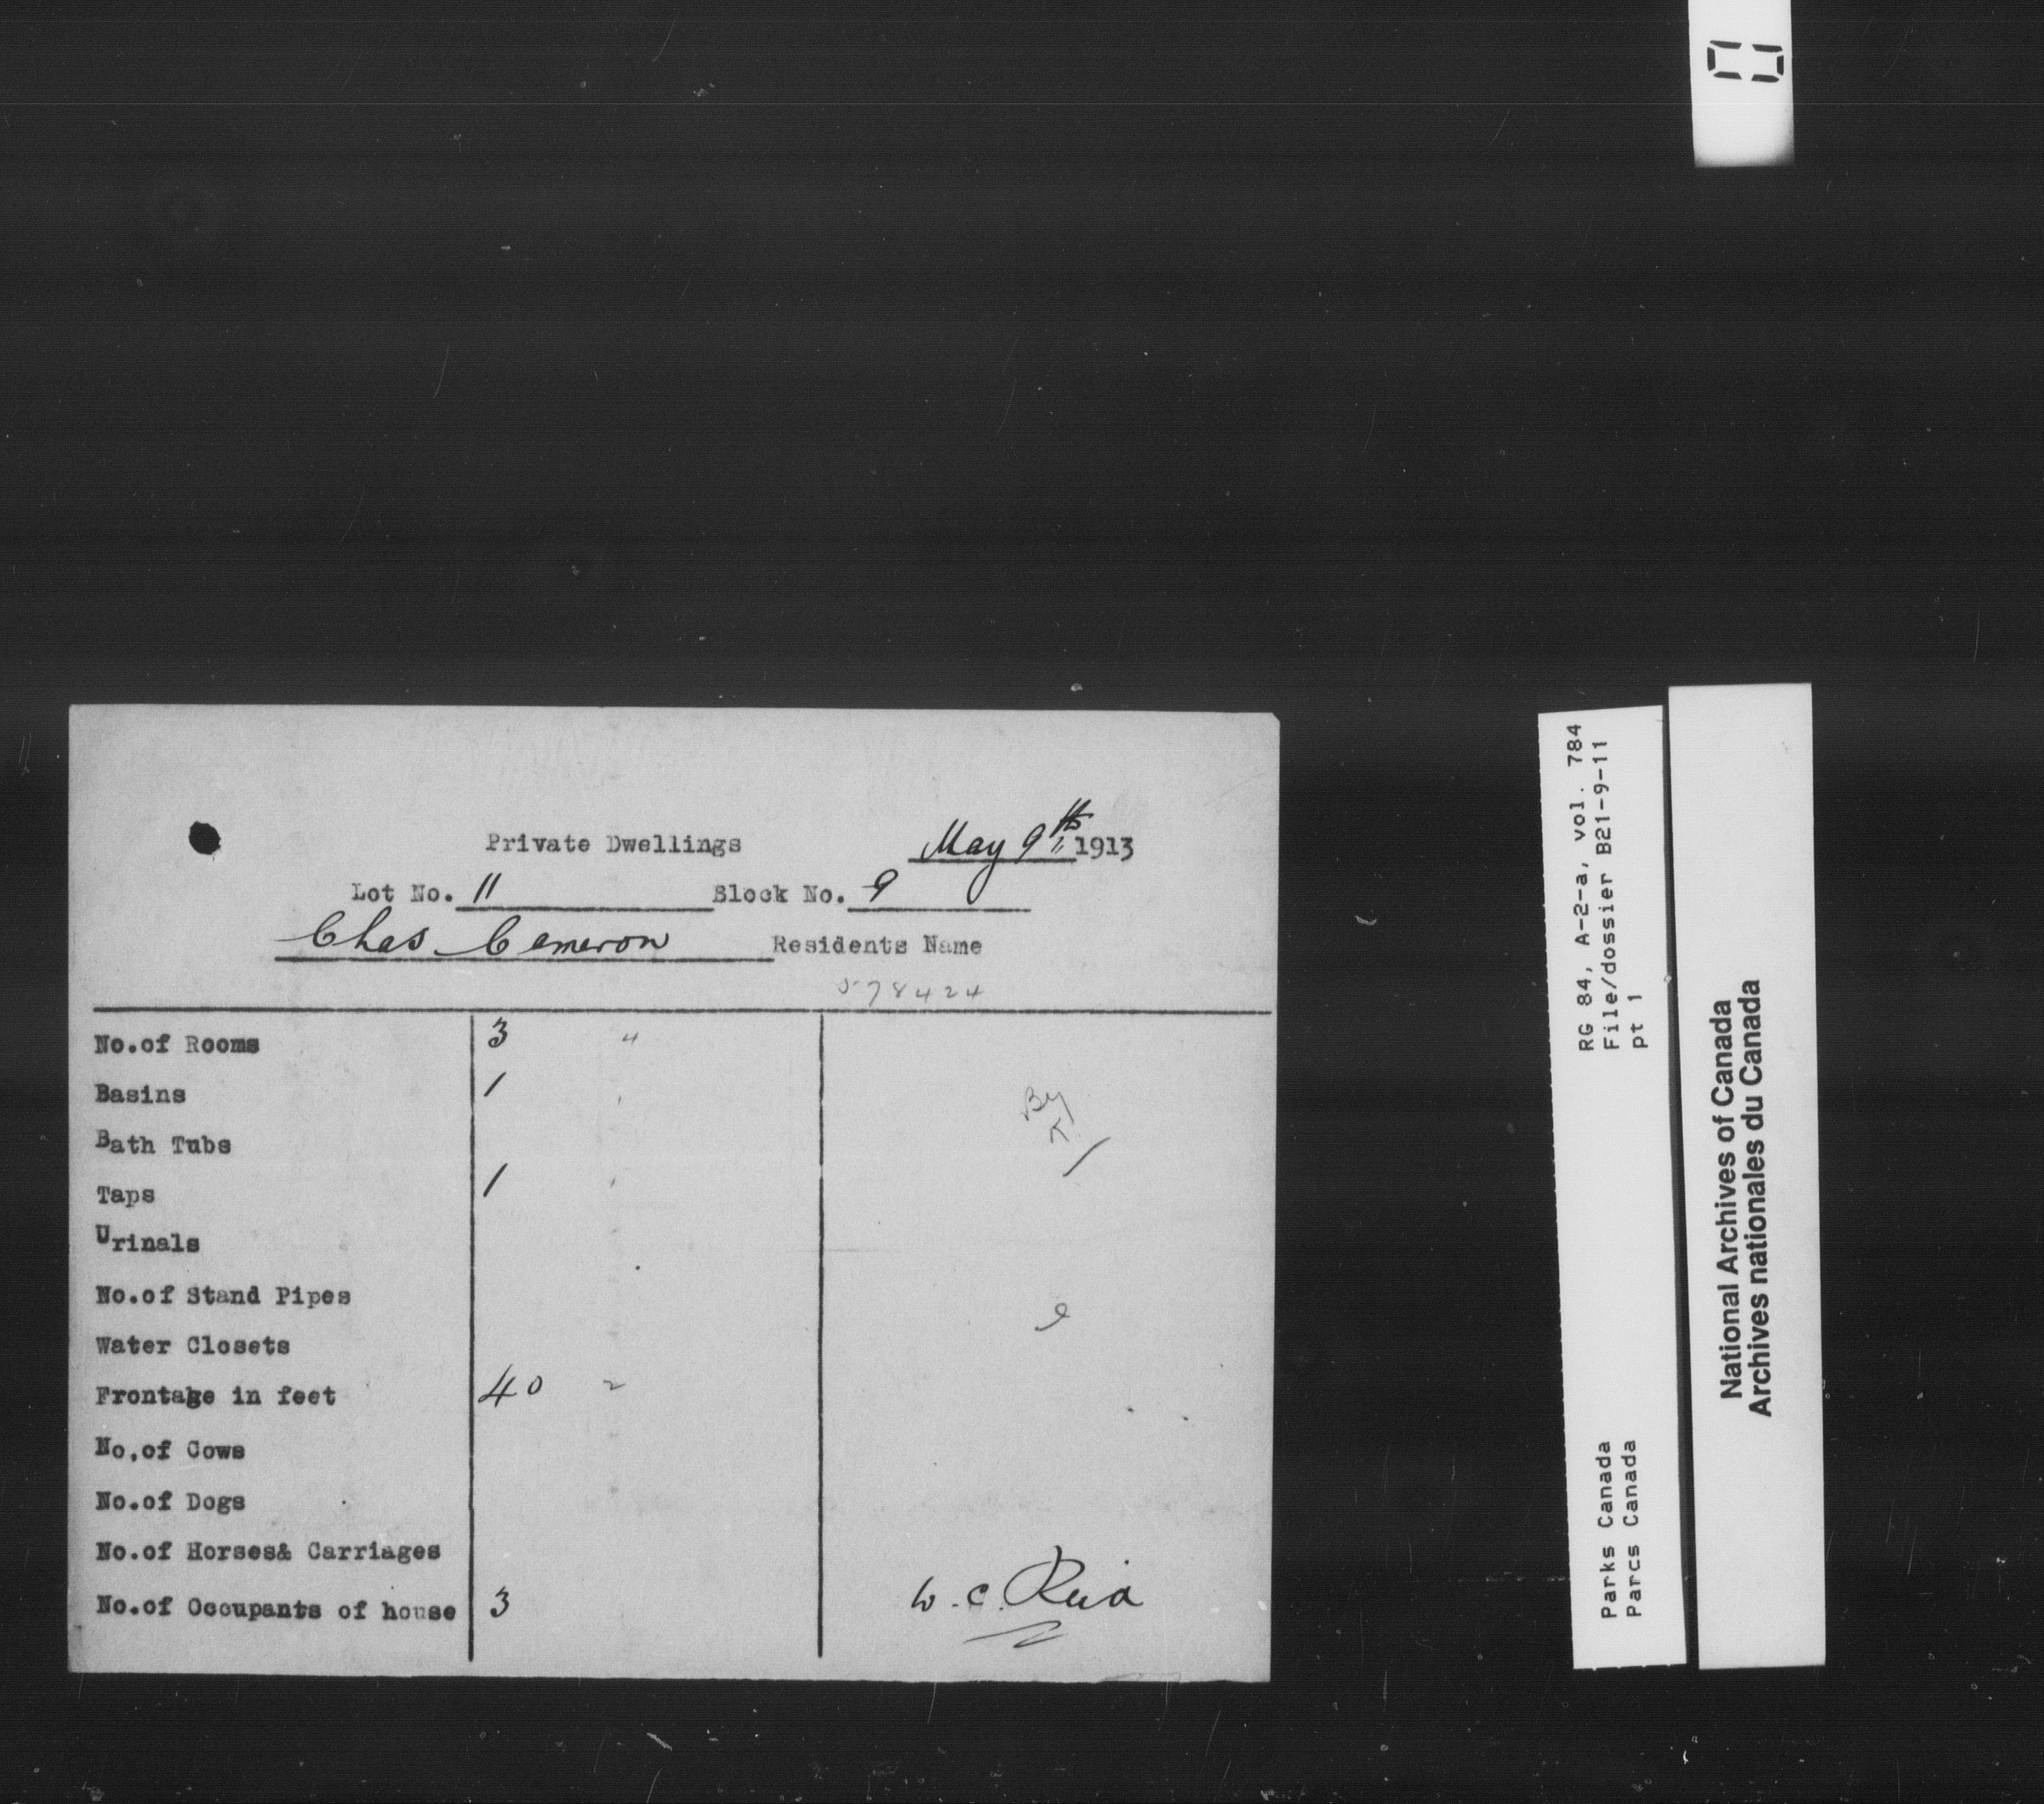 Private Dwellings May 9th 1913
Lot No. 11 Block No. 9
Chas Cameron Residents Name
578424
No.of Rooms 3 "
Basins 1
Bath Tubs
Taps 1
Urinals
No.of Stand Pipes
Water Closets
Frontage in feet 40
No.of Cows
No.of Dogs
No.of Horses& Carriages
No.of Occupants of house 3
W. C. Reid
RG 84, A-2-a, vol. 784
File/dossier B21-9-11
pt 1
Parks Canada
Parcs Canada
National Archives of Canada
Archives nationales du Canada